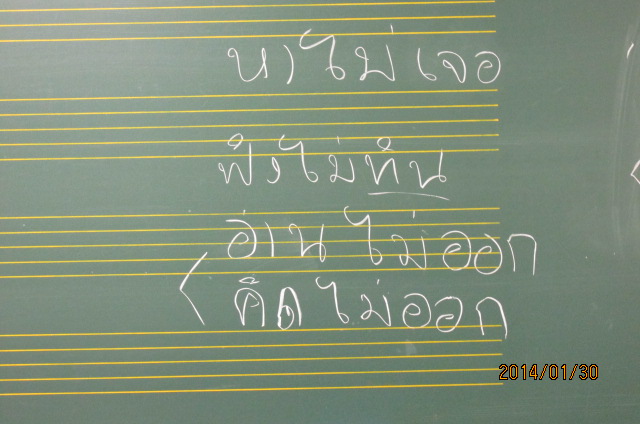 หาไม่เจอ
ฟังไม่ทัน
อ่านไม่ออก
คิดไม่ออก
2014/01/30